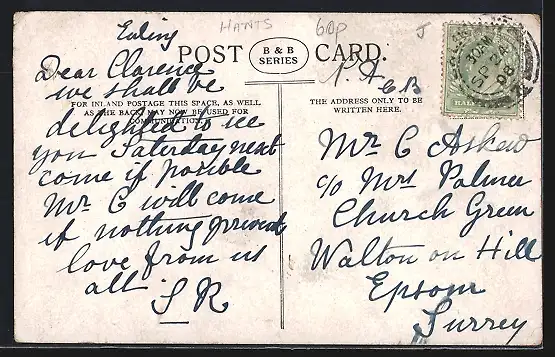 HANTS
60p
POST CARD.
B & B
SERIES
FOR INLAND POSTAGE THIS SPACE, AS WELL
AS THE BACK MAY NOW BE USED FOR
COMMUNICATION.
THE ADDRESS ONLY TO BE
WRITTEN HERE.
Ealing
Dear Clarence
we shall be
delighted to see
you Saturday next
come if posible
Mr. C will come
if nothing prevents
love from us
all. S R
Mr C Askew
c/o Mrs Palmer
Church Green
Walton on Hill
Epsom
Surrey
SP 24
08
HALF